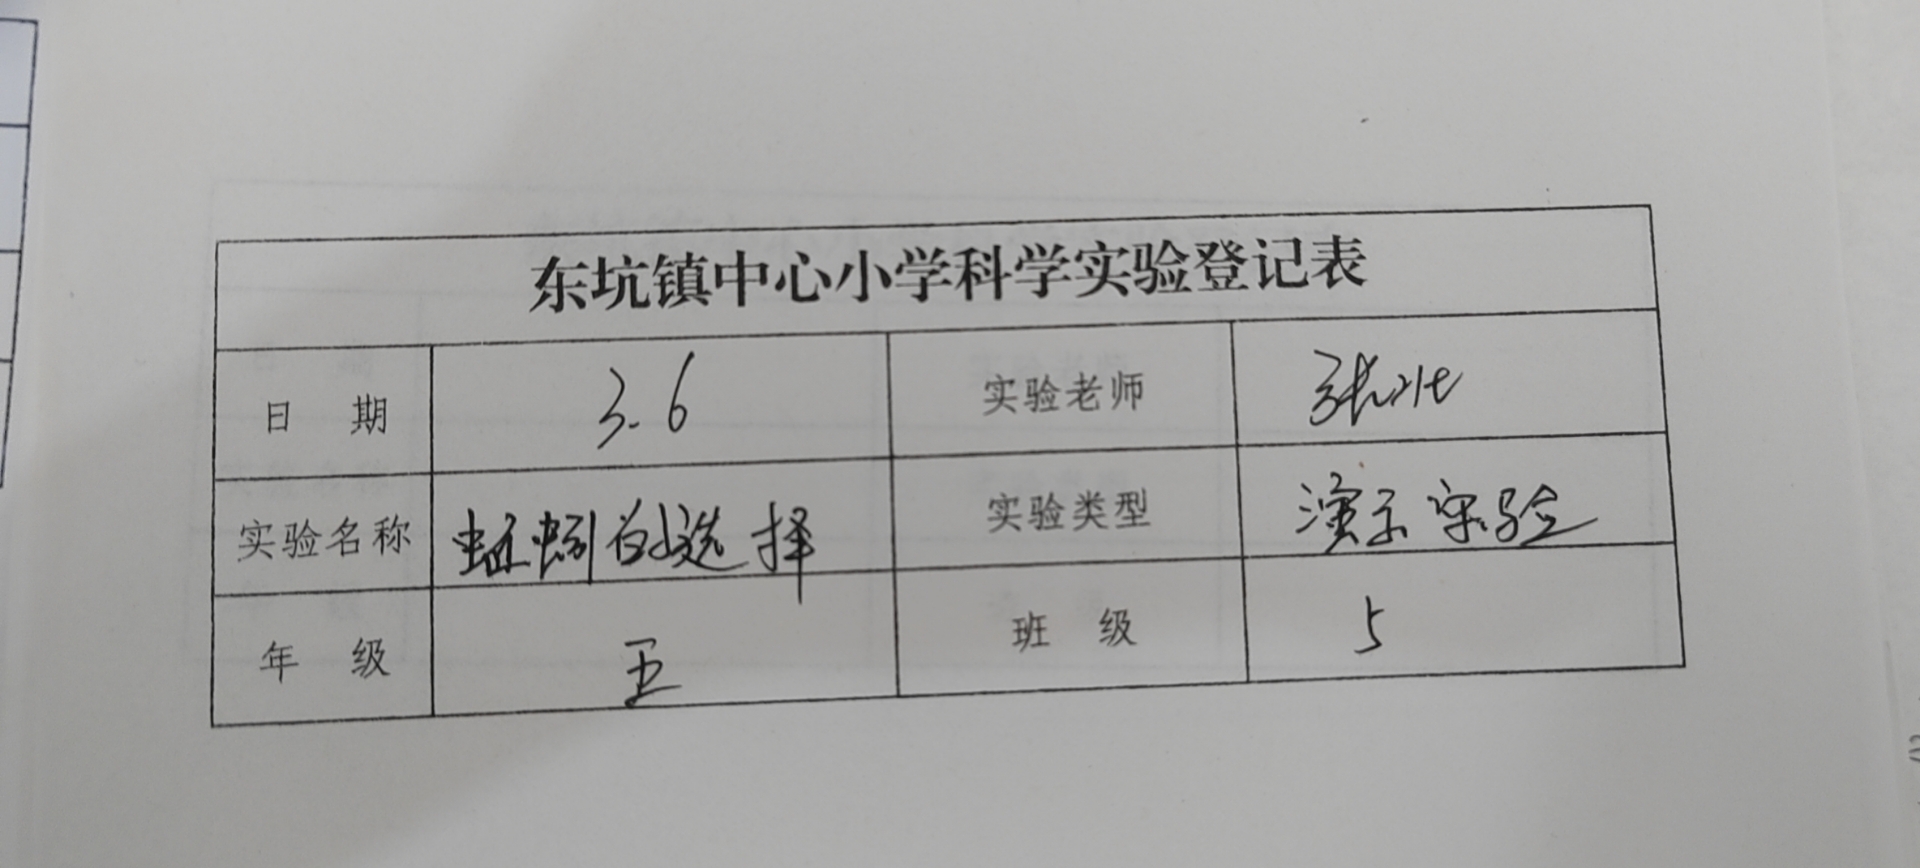 东坑镇中心小学科学实验登记表
日 期 3.6 实验老师 张
实验名称 蚯蚓的选择 实验类型 演示实验
年 级 五 班 级 5